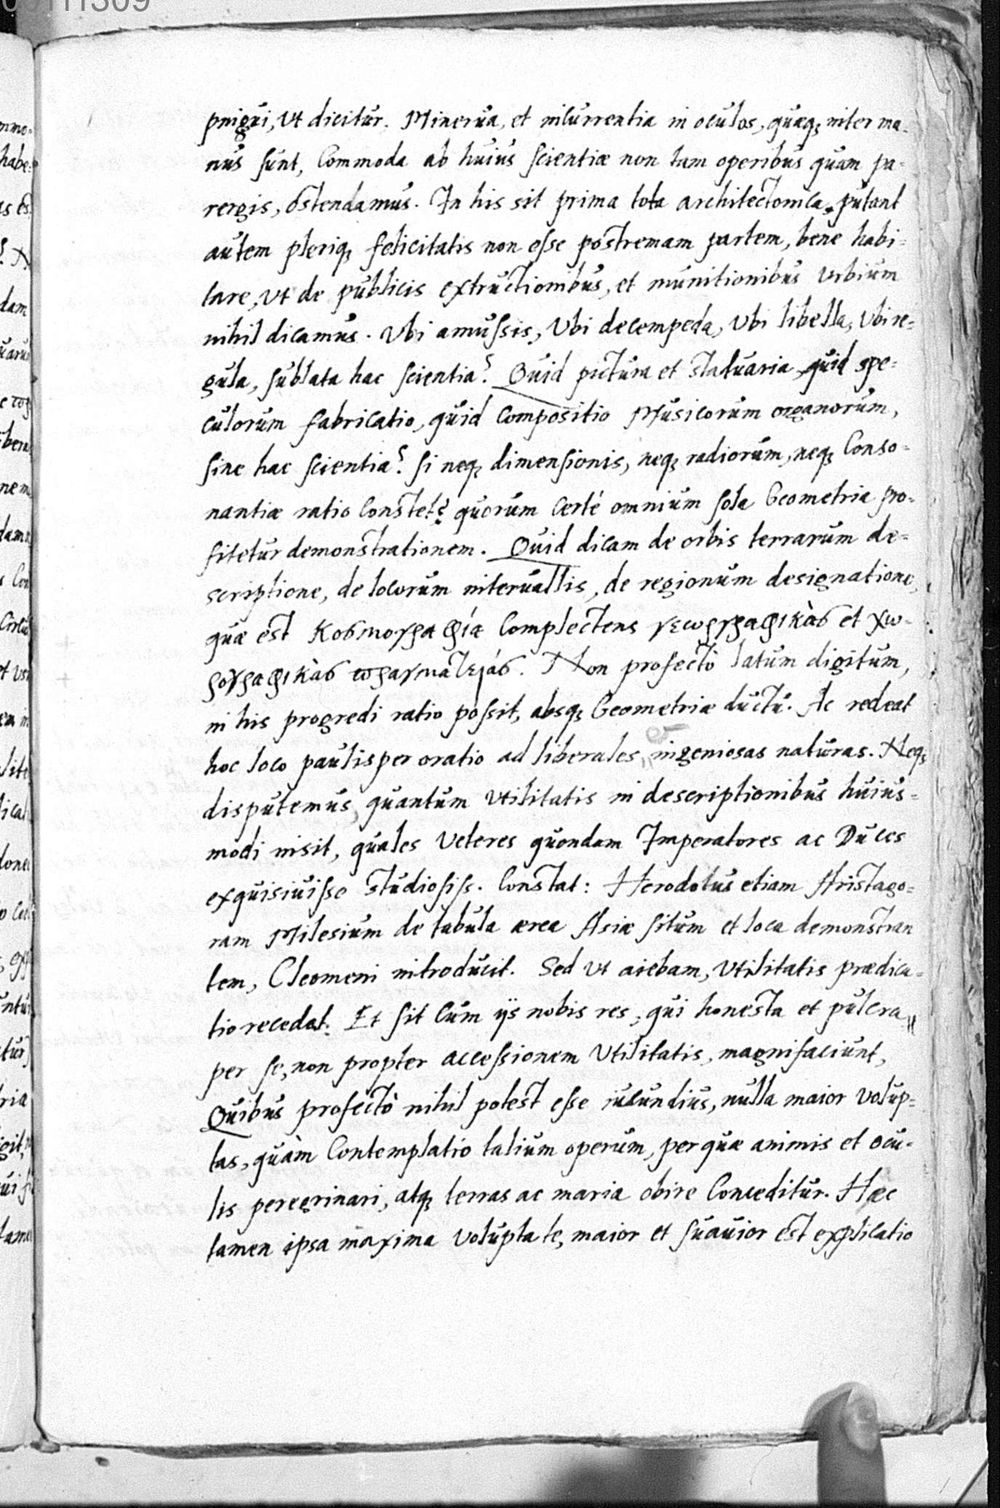 pnigui, vt dicitur. Minerua, et incurrentia in oculos, quaeq; inter ma-
nus sunt, Commoda ab huius scientiæ non tam operibus quam pa-
rergis, ostendamus. In his sit prima tota architectonica, putant
autem pleriq; felicitatis non esse postremam partem, bene habi-
tare, vt de publicis extructionibus, et munitionibus vrbium
nihil dicamus. Vbi amussis, Vbi decempeda, Vbi libella, Vbi re-
gula, sublata hac scientia? Quid pictura et statuaria, quid spe-
culorum fabricatio, quid compositio Musicorum organorum,
sine hac scientia? si neq; dimensionis, neq; radiorum, neq; Conso-
nantiæ ratio Constet? quorum certè omnium sola Geometria pro-
fitetur demonstrationem. Quid dicam de orbis terrarum de-
scriptione, de locorum interuallis, de regionum designatione,
quæ est κοσμογραφία Complectens γεωργραφικὰς et χω-
ρογραφικὰς πραγματείας. Non profectò latum digitum,
in his progredi ratio possit, absq; Geometriæ ductu. Ac redeat
hoc loco paulisper oratio ad liberales, ingeniosas naturas. Neq;
disputemus, quantum vtilitatis in descriptionibus huius-
modi insit, quales Veteres quondam Imperatores ac Duces
exquisiuisse studiosiss. Constat: Herodotus etiam Aristago-
ram Milesium de tabula ærea Asiæ situm et loca demonstran
tem, Cleomeni introducit. Sed vt aiebam, vtilitatis prædica-
tio recedat. Et sit Cum ijs nobis res, qui honesta et pulcra
per se, non propter accessionem Vtilitatis, magnifaciunt,
Quibus profectò nihil potest esse iucundius, nulla maior volup-
tas, quàm Contemplatio talium operum, per quæ animis et ocu-
lis peregrinari, atq; terras ac maria obire Conceditur. Hæc
tamen ipsa maxima voluptate, maior et suauior est explicatio